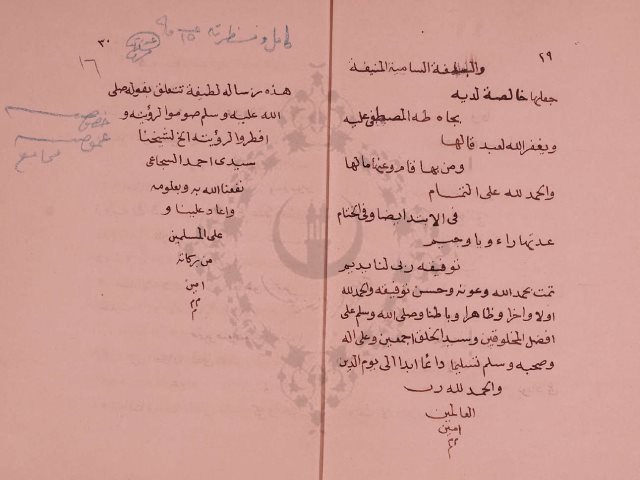 ٢٩
والتحفة السامية المنيفة
جعلها خالصة لديه
بجاه طه المصطفى عليه
ويغفر الله لعبد قالها
ومن بها قام وعنها مالها
والحمد لله على التمام
في الابتدا ايضا وفي الختام
عدتها راء ويا وجيم
توفيقه ربى لنا يديم
تمت بحمد الله وعونه وحسن توفيقه والحمد لله
اولا واخرا وظاهرا وباطنا وصلى الله وسلم على
افضل المخلوقين وسيد الخلق اجمعين وعلى اله
وصحبه وسلم تسليما دائما ابدا الى يوم الدين
والحمد لله رب
العالمين
امين
م م
٣٠
١٦
هذه رسالة لطيفة تتعلق بقوله صلى
الله عليه وسلم صوموا لرؤيته و
افطروا لرؤيته الخ لشيخنا
سيدى احمد السجاعى
نفعنا الله به وبعلومه
واعاد علينا و
على المسلمين
من بركاته
امين
م م
خصوصية
عمومية
مجاميع